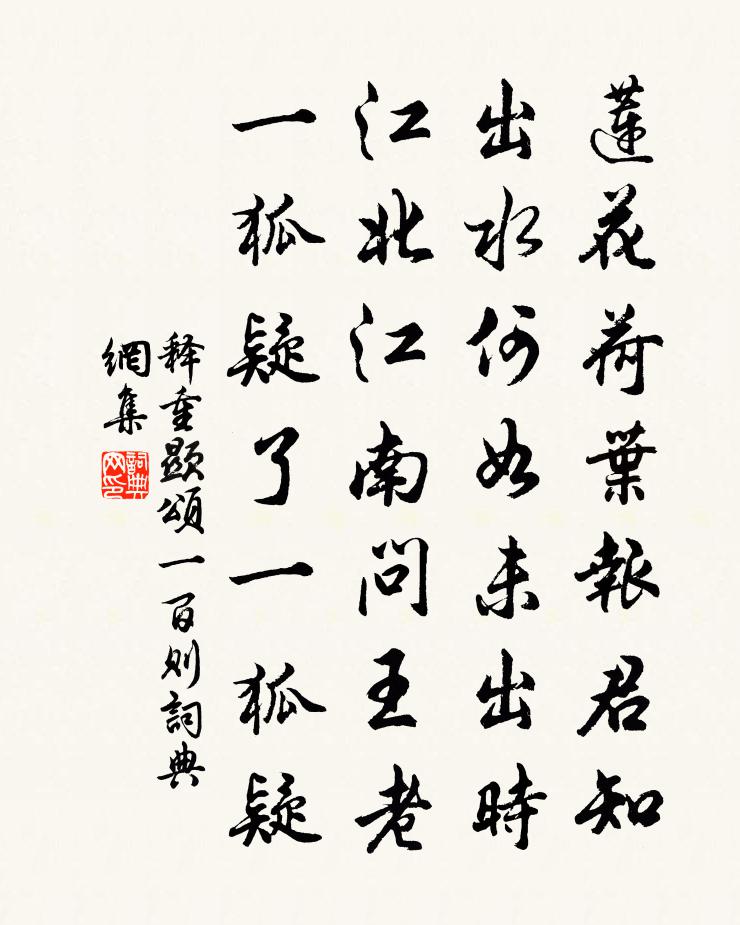 蓮花荷葉報君知
出水何如未出時
江北江南問王老
一狐疑了一狐疑
释重顯頌一百则詞典
網集
詞典网印